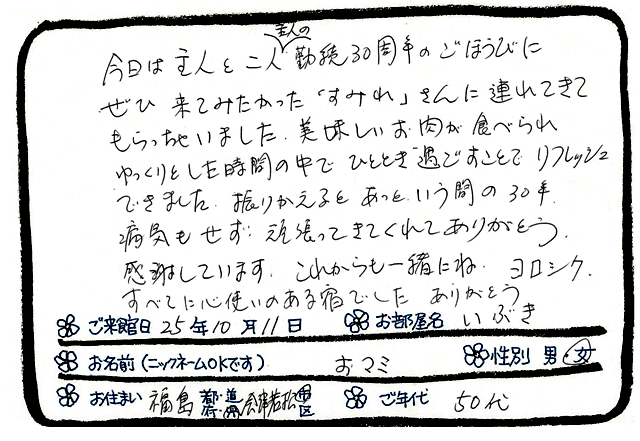 今日は主人と二人 主人の 勤続30周年のごほうびに
ぜひ来てみたかった「すみれ」さんに連れてきて
もらっちゃいました。美味しいお肉が食べられ
ゆっくりとした時間の中でひととき過ごすことでリフレッシュ
できました。振りかえるとあっという間の30年.
病気もせず 頑張ってきてくれてありがとう.
感謝しています. これからも一緒にね. ヨロシク.
すべてに心使いのある宿でした ありがとう
ご来館日 25年10月11日 お部屋名 いぶき
お名前(ニックネームOKです) おマミ 性別 男・女
お住まい 福島 都・道・府・県 会津若松 市区 ご年代 50代